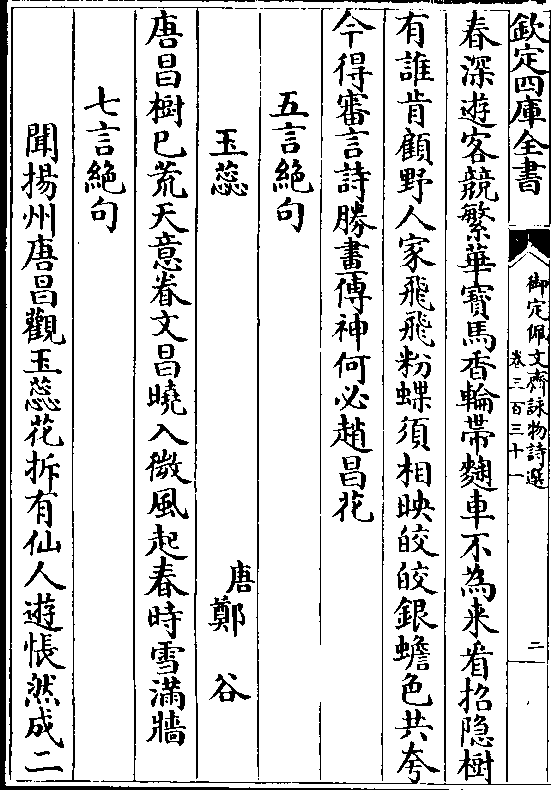 欽定四庫全書
御定佩文齋詠物詩選
卷三百三十一
二
春深遊客競繁華寶馬香輪帶麴車不為来看招隐樹
有誰肯顧野人家飛飛粉蝶須相映皎皎銀蟾色共夸
今得審言詩勝畫傳神何必趙昌花
五言絶句
玉蕊
唐鄭谷
唐昌樹已荒天意眷文昌曉入微風起春時雪滿牆
七言絶句
聞揚州唐昌觀玉蕊花拆有仙人遊悵然成二